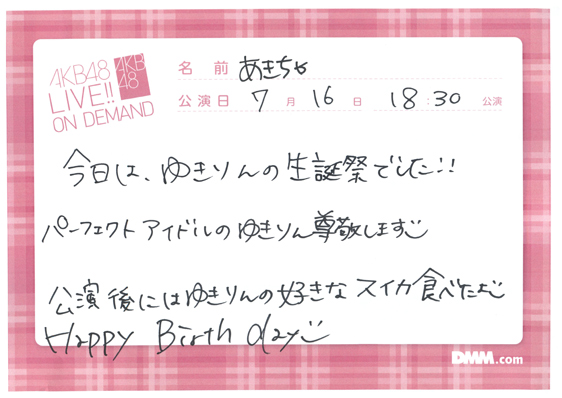 AKB48
LIVE!!
ON DEMAND
AKB
48
名前 あきちゃ
公演日 7月16日 18:30 公演
今日は、ゆきりんの生誕祭でした!!
パーフェクトアイドルのゆきりん尊敬します
公演後にはゆきりんの好きなスイカ食べたよ
Happy Birth day
DMM.com